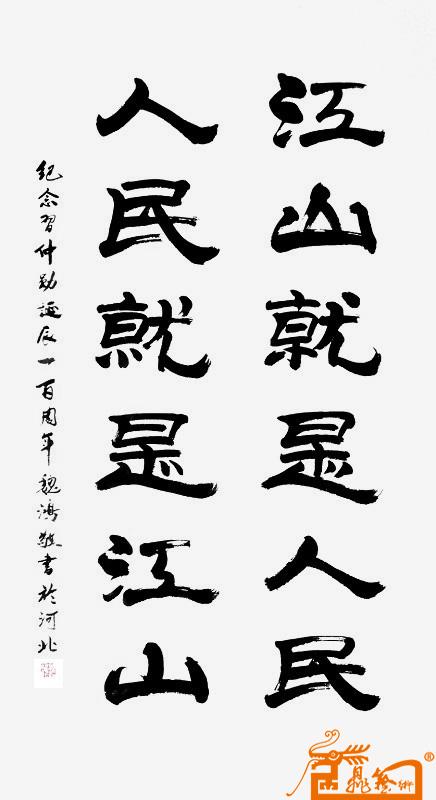 江山就是人民
人民就是江山
紀念習仲勛誕辰一百周年魏鴻敬書於河北